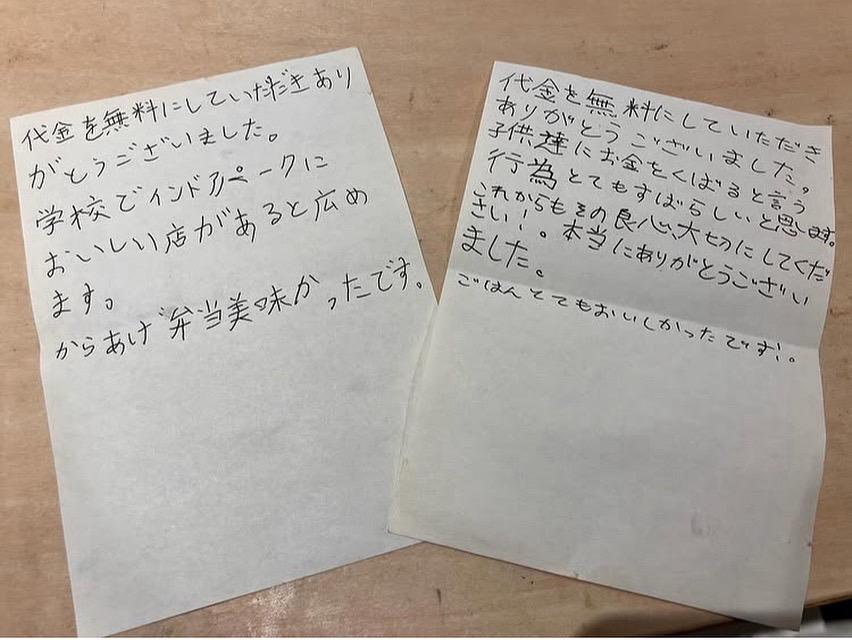 代金を無料にしていただきあり
がとうございました。
学校でインドアパークに
おいしい店があると広め
ます。
からあげ弁当美味かったです。
代金を無料にしていただき
ありがとうございました。
子供達にお金をくばると言う
行為とてもすばらしいと思します。
これからもその良心大切にしてくだ
さい！。本当にありがとうござい
ました。
ごはんとてもおいしかったです!。